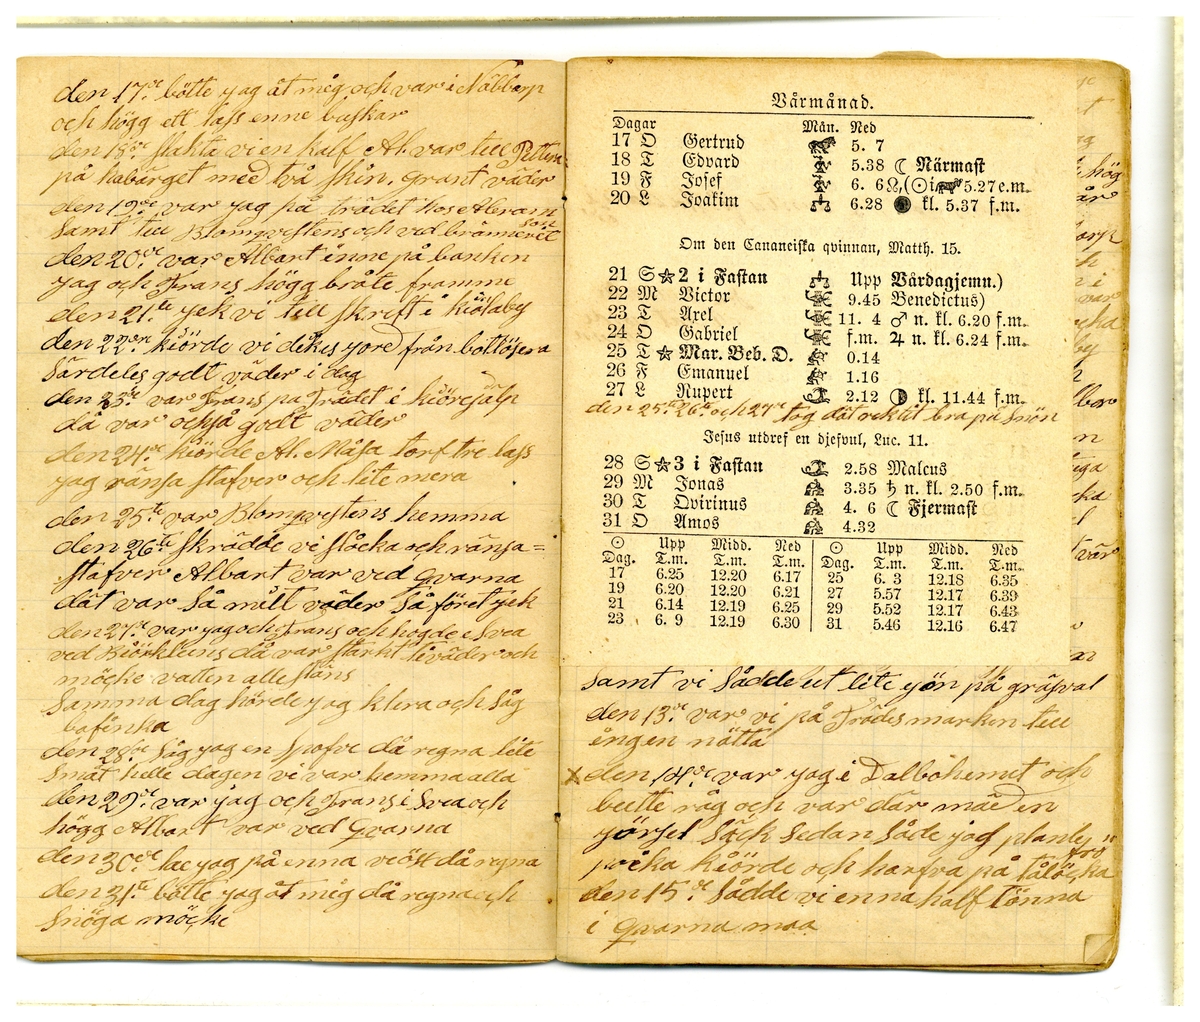 den 17de bötte jag åt mig och var i Nabbarp
och högg ett lass enne buskar
den 18de slakta vi en kalf Al. var till Petters
på habärget med två skin. grant väder
den 19de var jag på trädet hos Abram
samt till Blomqvistens och ved bränneriet
den 20de var Albart inne på banken
jag och Frans högg bråte framme
den 21te gek vi till skrift i kiölaby
den 22dra kiörde vi dikes jord från bottlösera
särdeles godt väder i dag
den 23de var Frans pa Trädet i kiörejälp
då var också godt väder
den 24de kiörde Al. Måsa torf tre lass
jag ränsa stafver och lite mera
den 25te var Blomqvistens hemma
den 26te skrädde vi stocka och ränsa=
stafver Albart var ved qvarna
dät var så milt väder så föret gek
den 27de var jag och Frans och hogde i Svea
ved Biörkleins då var starkt töväder och
möcke vatten allestäns
Samma dag hörde jag klera och såg
bofinka
den 28de Sig jag en Spofve då regna lite
smat hele dagen vi var hemma alla
den 29de var jag och Frans i Svea och
högg Albart var ved qvarna
den 30de lae jag på enna viöst då regna
den 31te bötte jag åt mig då regna och
snöga möcke
Vårmånad.
Dagar Mån. Ned
17 O Gertrud 5. 7
18 T Edvard 5.38 ☾ Närmast
19 F Josef 6. 6 ☊, (☉ i 5.27 e.m.
20 L Joakim ♎ 6.28 ● kl. 5.37 f.m.
Om den Cananeiska qvinnan, Matth. 15.
21 S ☆ 2 i Fastan ♎ Upp Vårdagjemn.)
22 M Victor 9.45 Benedictus)
23 T Axel 11. 4 ♂ n. kl. 6.20 f.m.
24 O Gabriel f.m. ♃ n. kl. 6.24 f.m.
25 T ☆ Mar. Beb. D. 0.14
26 F Emanuel 1.16
27 L Rupert 2.12 ◑ kl. 11.44 f.m.
den 25te 26te och 27de tog dät rektit bra på snön
Jesus utdref en djefvul, Luc. 11.
28 S ☆ 3 i Fastan 2.58 Malcus
29 M Jonas 3.35 ♄ n. kl. 2.50 f.m.
30 T Qvirinus 4. 6 ☾ Fjermast
31 O Amos 4.32
☉ Upp Midd. Ned ☉ Upp Midd. Ned
Dag. T.m. T.m. T.m. Dag. T.m. T.m. T.m.
17 6.25 12.20 6.17 25 6. 3 12.18 6.35
19 6.20 12.20 6.21 27 5.57 12.17 6.39
21 6.14 12.19 6.25 29 5.52 12.17 6.43
23 6. 9 12.19 6.30 31 5.46 12.16 6.47
samt vi sådde ut lite gön på gräfval
den 13de var vi på Trädesmarken till
ingen nötta
x den 14de var jag i Dalbohemit och
butte råg och var där mäd en
jörsel säck sedan såde jag plantefrö
pocka kiörde och harfva på tåtöcka
den 15de sådde vi enna half tönna
i qvarna maa